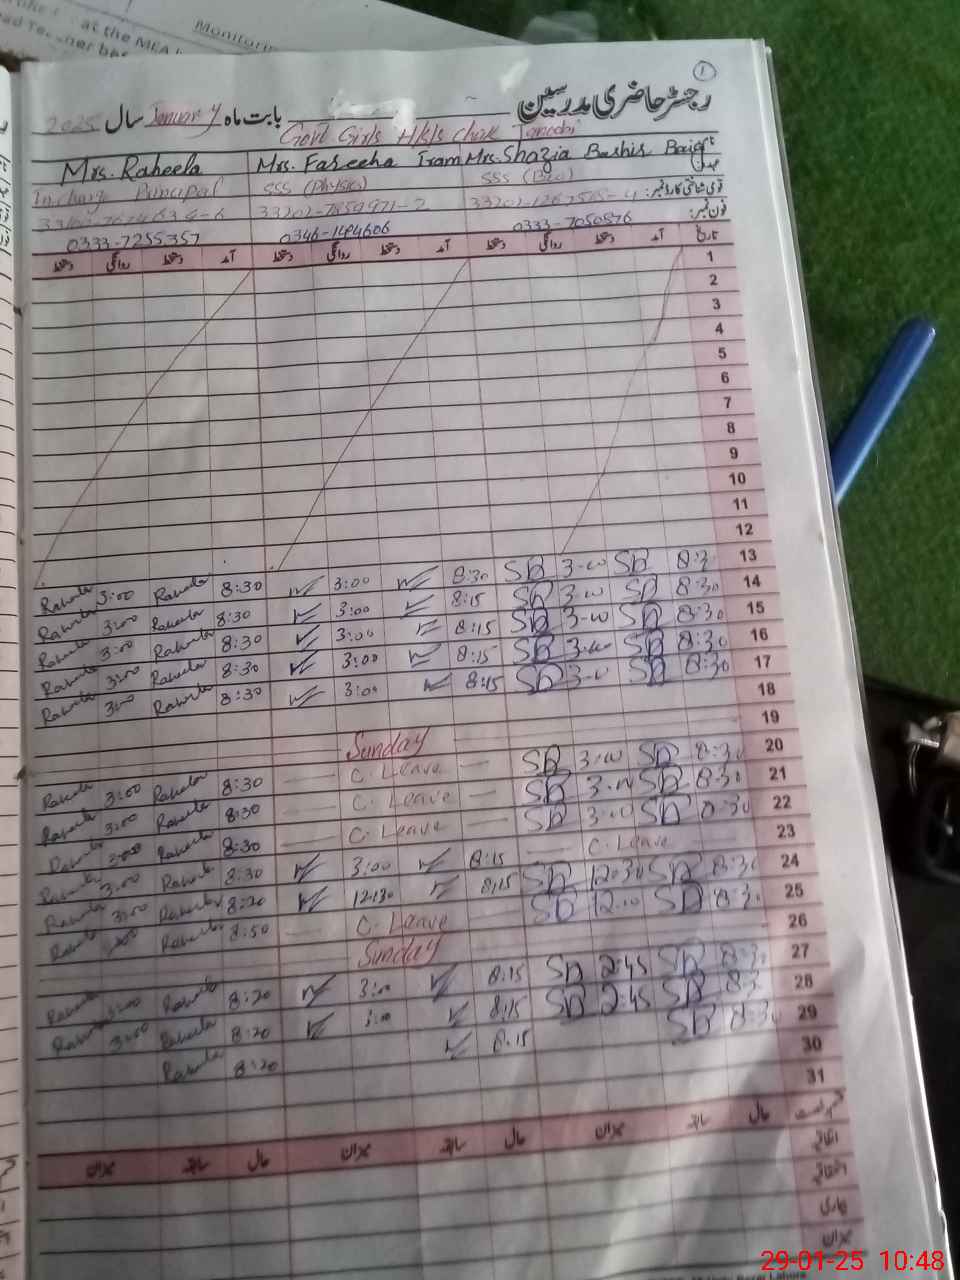 at the MEA
Monitorin
1
رجسٹر حاضری مدرسین
بابت ماہ January سال 2025
Govt Girls H/S/S Chak
Mrs. Raheela Mrs. Fareeha Iram Mrs. Shazia Bashir Baig
Incharge Principal SSS (Physics) SSS (Bio)
قومی شناختی کارڈ نمبر:
فون نمبر: 0333-7255357 0333-7050876
تاریخ آمد دستخط روانگی دستخط آمد دستخط روانگی دستخط آمد دستخط روانگی دستخط
1
2
3
4
5
6
7
8
9
10
11
12
Raheela 3:00 Raheela 8:30 3:00 8:30 SB 3-00 SB 8:30 13
Raheela 3:00 Raheela 8:30 3:00 8:15 SB 3-00 SB 8:30 14
Raheela 3:00 Raheela 8:30 3:00 8:15 SB 3-00 SB 8:30 15
Raheela 3:00 Raheela 8:30 3:00 8:15 SB 3-00 SB 8:30 16
Raheela 3:00 Raheela 8:30 3:00 8:15 SB 3-00 SB 8:30 17
18
Sunday 19
Raheela 3:00 Raheela 8:30 C. Leave SB 3-00 SB 8:30 20
Raheela 3:00 Raheela 8:30 C. Leave SB 3-00 SB 8:30 21
Raheela 3:00 Raheela 8:30 C. Leave SB 3-00 SB 8:30 22
Raheela 3:00 Raheela 8:30 3:00 8:15 C. Leave 23
Raheela 3:00 Raheela 8:20 12:30 8:15 SB 12:30 SB 8:30 24
Raheela Raheela 8:50 C. Leave SB 12-00 SB 8:30 25
Sunday 26
Raheela 3:00 Raheela 8:20 3:00 8:15 SB 2:45 SB 8:30 27
Raheela 3:00 Raheela 8:20 3:00 8:15 SB 2:45 SB 8:30 28
Raheela 8:20 8:15 SB 8:30 29
30
31
حال سابقہ میزان حال سابقہ میزان حال سابقہ میزان
اتفاقیہ
بیماری
میزان
29-01-25 10:48